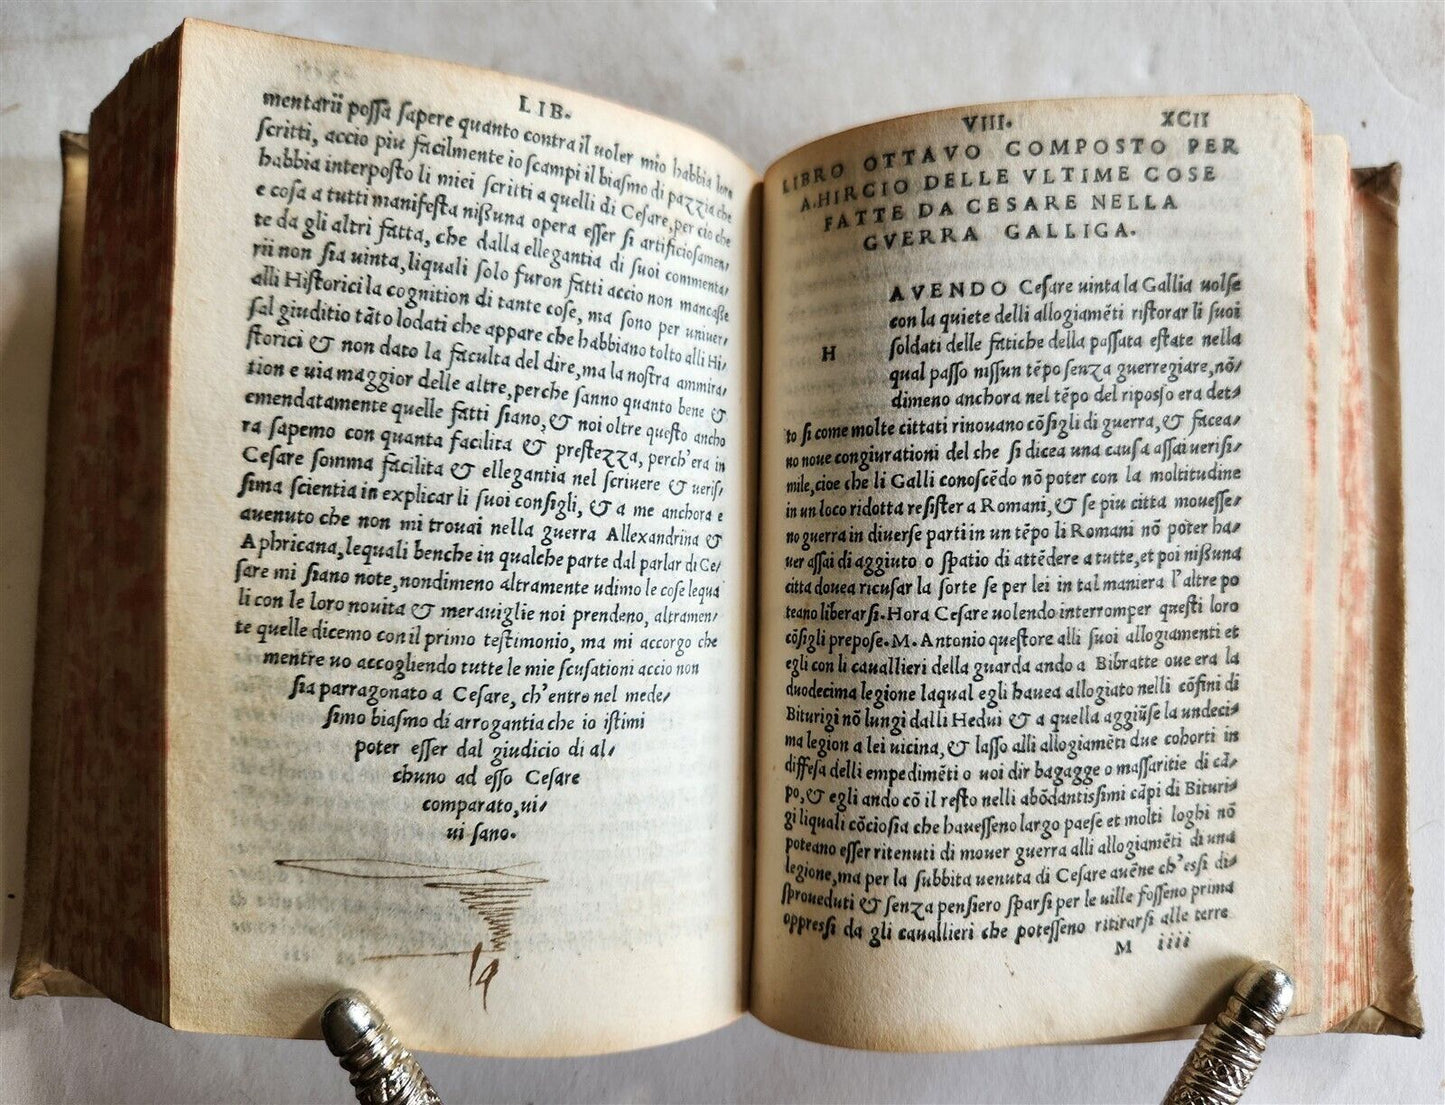 LIB.
mentarii possa sapere quanto contra il uoler mio habbia loro
scritti, accio piu facilmente io scampi il biasmo di pazzia che
habbia interposto li miei scritti a quelli di Cesare, per cio che
e cosa a tutti manifesta nißuna opera esser si artificiosamen,
te da gli altri fatta, che dalla ellegantia di suoi commenta,
rii non sia uinta, liquali solo furon fatti accio non mancaße
alli Historici la cognition di tante cose, ma sono per uniuer,
sal giuditio tãto lodati che appare che habbiano tolto alli Hi,
storici & non dato la faculta del dire, ma la nostra ammira,
tion e uia maggior delle altre, perche sanno quanto bene &
emendatamente quelle fatti siano, & noi oltre questo ancho
ra sapemo con quanta facilita & prestezza, perch'era in
Cesare somma facilita & ellegantia nel scriuere & ueris,
sima scientia in explicar li suoi consigli, & a me anchora e
auenuto che non mi trouai nella guerra Allexandrina &
Aphricana, lequali benche in qualche parte dal parlar di Ce,
sare mi siano note, nondimeno altramente udimo le cose lequa
li con le loro nouita & merauiglie noi prendeno, altramen,
te quelle dicemo con il primo testimonio, ma mi accorgo che
mentre uo accogliendo tutte le mie scusationi accio non
sia parragonato a Cesare, ch'entro nel mede,
simo biasmo di arrogantia che io istimi
poter esser dal giudicio di al,
chuno ad esso Cesare
comparato, ui,
ui sano.
VIII. XCII
LIBRO OTTAVO COMPOSTO PER
A. HIRCIO DELLE VLTIME COSE
FATTE DA CESARE NELLA
GVERRA GALLIGA.
AVENDO Cesare uinta la Gallia uolse
con la quiete delli allogiamẽti ristorar li suoi
H soldati delle fatiche della passata estate nella
qual passo nissun tẽpo senza guerregiare, nõ,
dimeno anchora nel tẽpo del riposso era det,
to si come molte cittati rinouano cõsigli di guerra, & facea,
no noue congiurationi del che si dicea una causa assai uerisi,
mile, cioe che li Galli conoscẽdo nõ poter con la moltitudine
in un loco ridotta resister a Romani, & se piu citta mouesse,
no guerra in diuerse parti in un tẽpo li Romani nõ poter ha,
uer assai di aggiuto o spatio di attẽdere a tutte, et poi nißuna
citta douea ricusar la sorte se per lei in tal maniera l'altre po
teano liberarsi. Hora Cesare uolendo interromper questi loro
cõsigli prepose. M. Antonio questore alli suoi allogiamenti et
egli con li cauallieri della guarda ando a Bibratte oue era la
duodecima legione laqual egli hauea allogiato nelli cõfini di
Biturigi nõ lungi dalli Hedui & a quella aggiũse la undeci,
ma legion a lei uicina, & lasso alli allogiamẽti due cohorti in
diffesa delli empedimẽti o uoi dir bagagge o massaritie di cã,
po, & egli ando cõ il resto nelli abõdantissimi cãpi di Bituri,
gi liquali cõciosia che hauesseno largo paese et molti loghi nõ
poteano esser ritenuti di mouer guerra alli allogiamẽti di una
legione, ma per la subbita uenuta di Cesare auẽne ch'essi di,
sproueduti & senza pensiero sparsi per le uille fosseno prima
oppressi da gli cauallieri che potesseno ritirarsi alle terre
M iiii